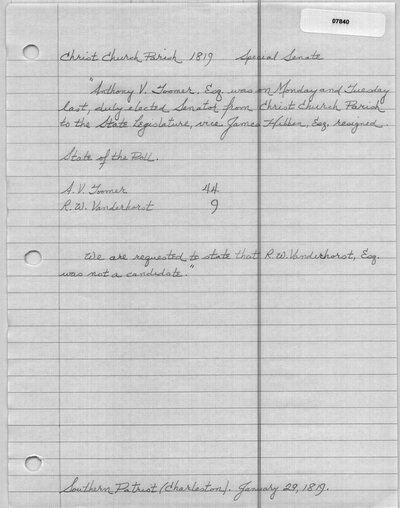 07840
Christ Church Parish 1819 Special Senate
"Anthony V. Toomer, Esq. was on Monday and Tuesday
last, duly elected Senator from Christ Church Parish
to the State Legislature, vice James Hibben, Esq. resigned.
State of the Poll.
A. V. Toomer 44
R. W. Vanderhorst 9
We are requested to state that R. W. Vanderhorst, Esq.
was not a candidate."
Southern Patriot (Charleston). January 29, 1819.